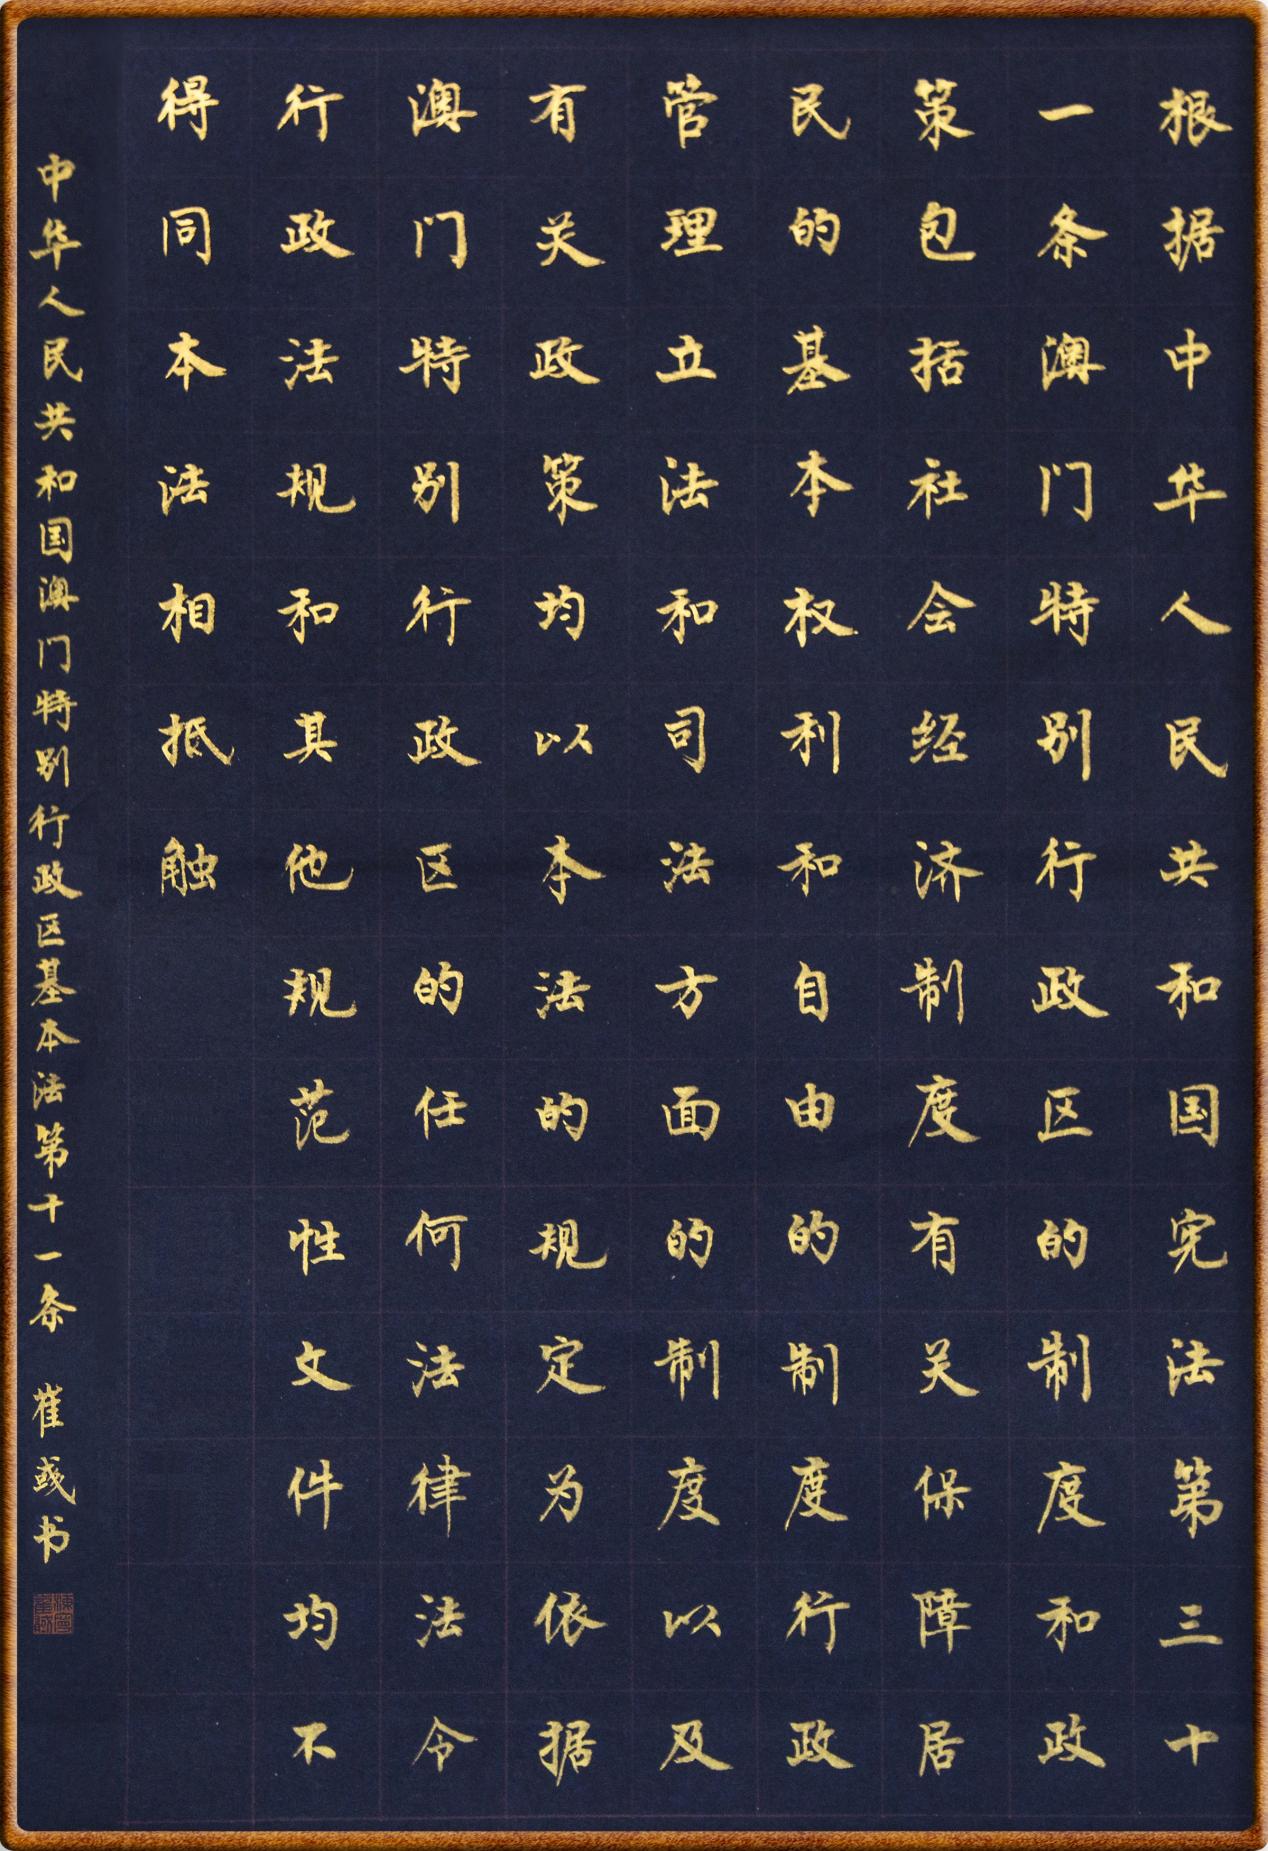 根据中华人民共和国宪法第三十
一条澳门特别行政区的制度和政
策包括社会经济制度有关保障居
民的基本权利和自由的制度行政
管理立法和司法方面的制度以及
有关政策均以本法的规定为依据
澳门特别行政区的任何法律法令
行政法规和其他规范性文件均不
得同本法相抵触
中华人民共和国澳门特别行政区基本法第十一条 崔彧书